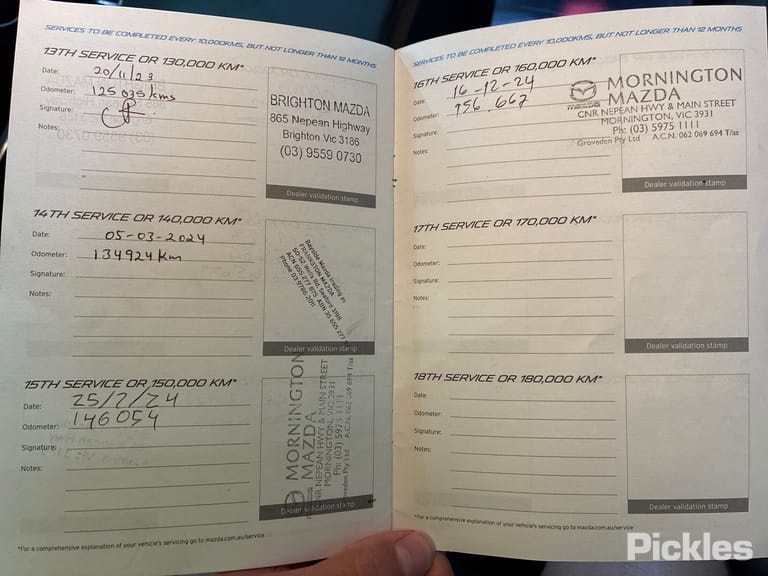 SERVICES TO BE COMPLETED EVERY 10,000KMS, BUT NOT LONGER THAN 12 MONTHS
13TH SERVICE OR 130,000 KM*
Date: 20/11/23
Odometer: 125035 kms
Signature:
Notes:
BRIGHTON MAZDA
865 Nepean Highway
Brighton Vic 3186
(03) 9559 0730
Dealer validation stamp
14TH SERVICE OR 140,000 KM*
Date: 05-03-2024
Odometer: 134924 km
Signature:
Notes:
Bayside Mazda trading as
FRANKSTON MAZDA
50-52 Wells Rd, Seaford 3198
ACN 655 277 875 ABN 35 655 277
Phone 03 9786 2011
Dealer validation stamp
15TH SERVICE OR 150,000 KM*
Date: 25/7/24
Odometer: 146054
Signature:
Notes:
MORNINGTON
MAZDA
CNR NEPEAN HWY & MAIN STREET
MORNINGTON, VIC 3931
Ph: (03) 5975 1111
Groveden Pty Ltd A.C.N. 062 069 694 T/as
Dealer validation stamp
*For a comprehensive explanation of your vehicle's servicing go to mazda.com.au/service
SERVICES TO BE COMPLETED EVERY 10,000KMS, BUT NOT LONGER THAN 12 MONTHS
16TH SERVICE OR 160,000 KM*
Date: 16-12-24
Odometer: 156.667
Signature:
Notes:
MORNINGTON
MAZDA
CNR NEPEAN HWY & MAIN STREET
MORNINGTON, VIC 3931
Ph: (03) 5975 1111
Groveden Pty Ltd A.C.N. 062 069 694 T/as
Dealer validation stamp
17TH SERVICE OR 170,000 KM*
Date:
Odometer:
Signature:
Notes:
Dealer validation stamp
18TH SERVICE OR 180,000 KM*
Date:
Odometer:
Signature:
Notes:
Dealer validation stamp
*For a comprehensive explanation of your vehicle's servicing go to mazda.com.au/service
Pickles